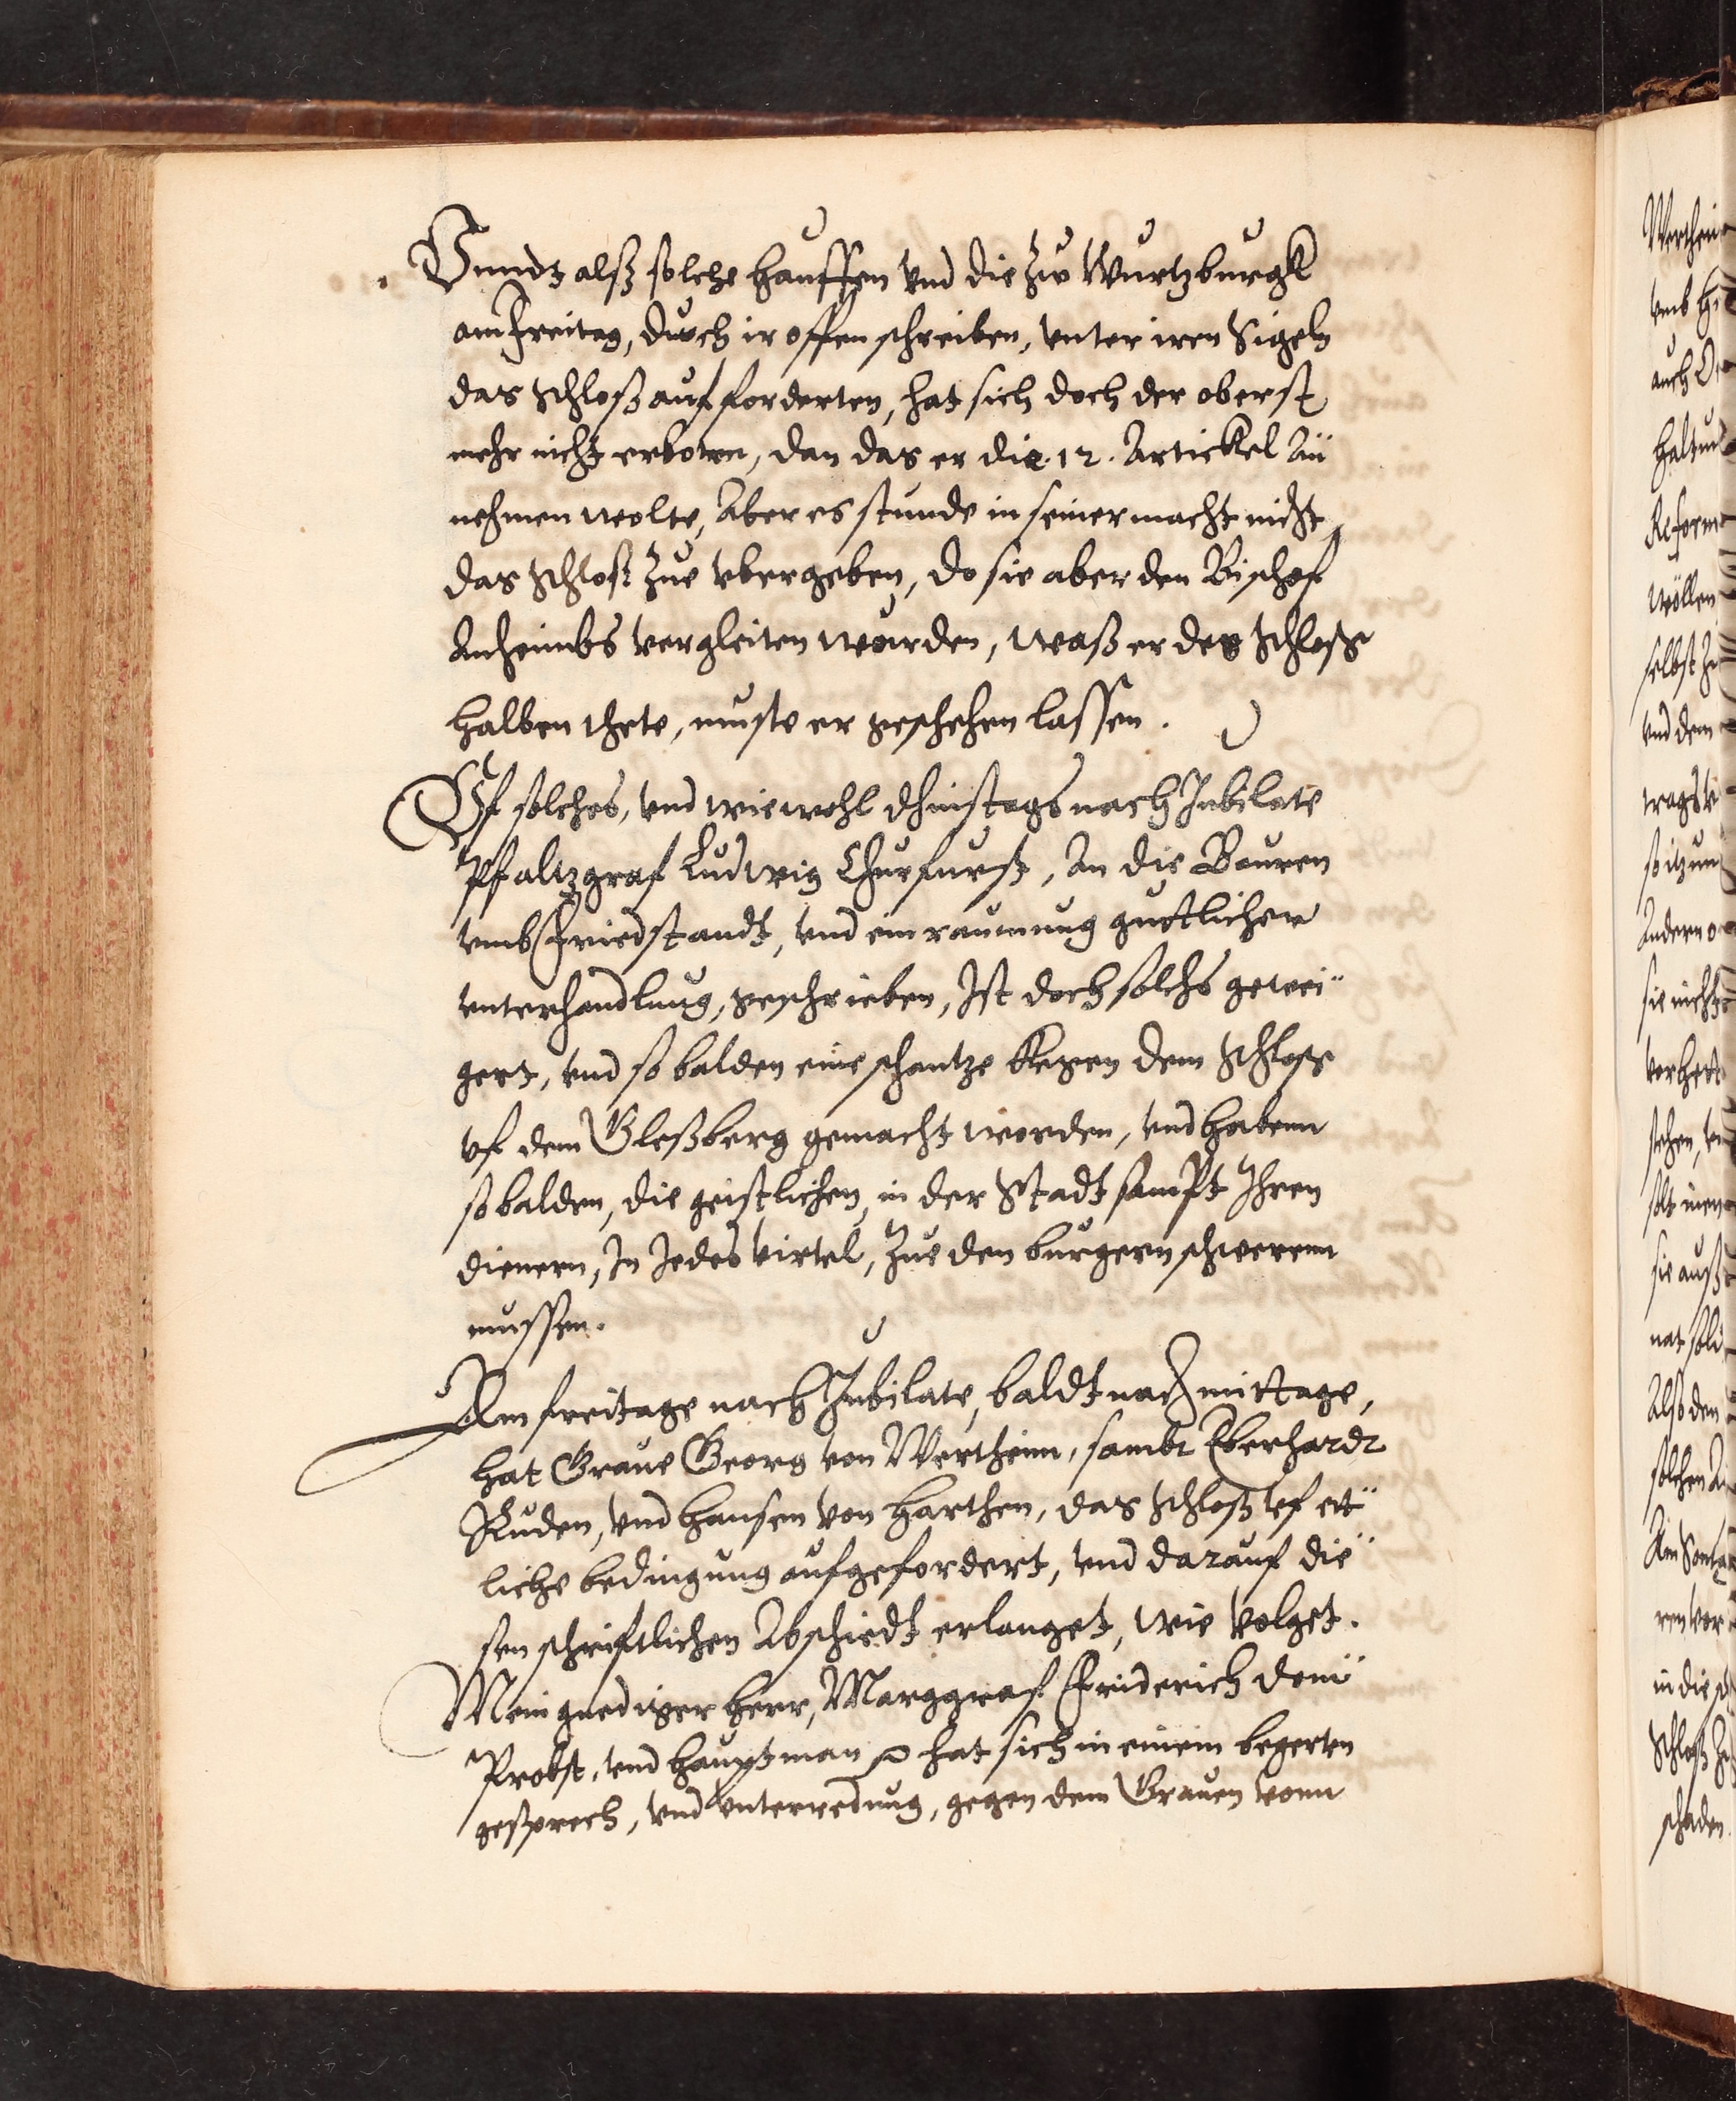 Vnndt alß solche hauffen vnd die zue Wurtzburgk
am Freitag, durch ir offen schreiben, vnter iren Sigeln
das Schloß aufforderten, hat sich doch der oberst
mehr nicht erboten, dan das er die .12. Artickel An
nehmen wolte, Aber es stunde in seiner macht nicht
das Schloß zue vbergeben, do sie aber den Bischof
Anheimbs vergleiten wurden, waß er des Schloß
halben thete, muste er geschehen lassen.
Vf solches, vnd wiewohl dhinstags nach Jubilate
Pfaltzgraf Ludwig Churfurst, An die Bauren
vmb Friedstandt, vnd einraumung guetlicher
vnterhandlung, geschrieben, Ist doch solchs gewei¨
gert, vnd so balden eine schantze kegen dem Schloß
vf dem Gleßberg gemacht worden, vnd habenn
so balden, die geistlichen, in der Stadt sampt Ihren
dienern, In Jedes virtel, zue den burgern schwerenn
mussen.
Am freitage nach Jubilate, baldt nach mittage,
hat Graue Georg von Wertheim, sambt Eberhardt
Ruden, vnd hansen von Harthen, das Schloß vf et¨
liche bedingung aufgefordert, vnd darauf die¨
sen schriftlichen Abschiedt erlanget, wie volget.
Mein gnediger herr, Marggraf Friderich dom¨
Probst, vnd hauptman hat sich in einem begerten
gesprech, vnd vnterredung, gegen dem Grauen vonn
Werthei
vmb
auch
Reform
wöllen
selbst
vnd dem
Andern
sie nicht
stehen,
sie auß
nat
Also den
solchen
Am Sonta
in die
Schloß
schaden